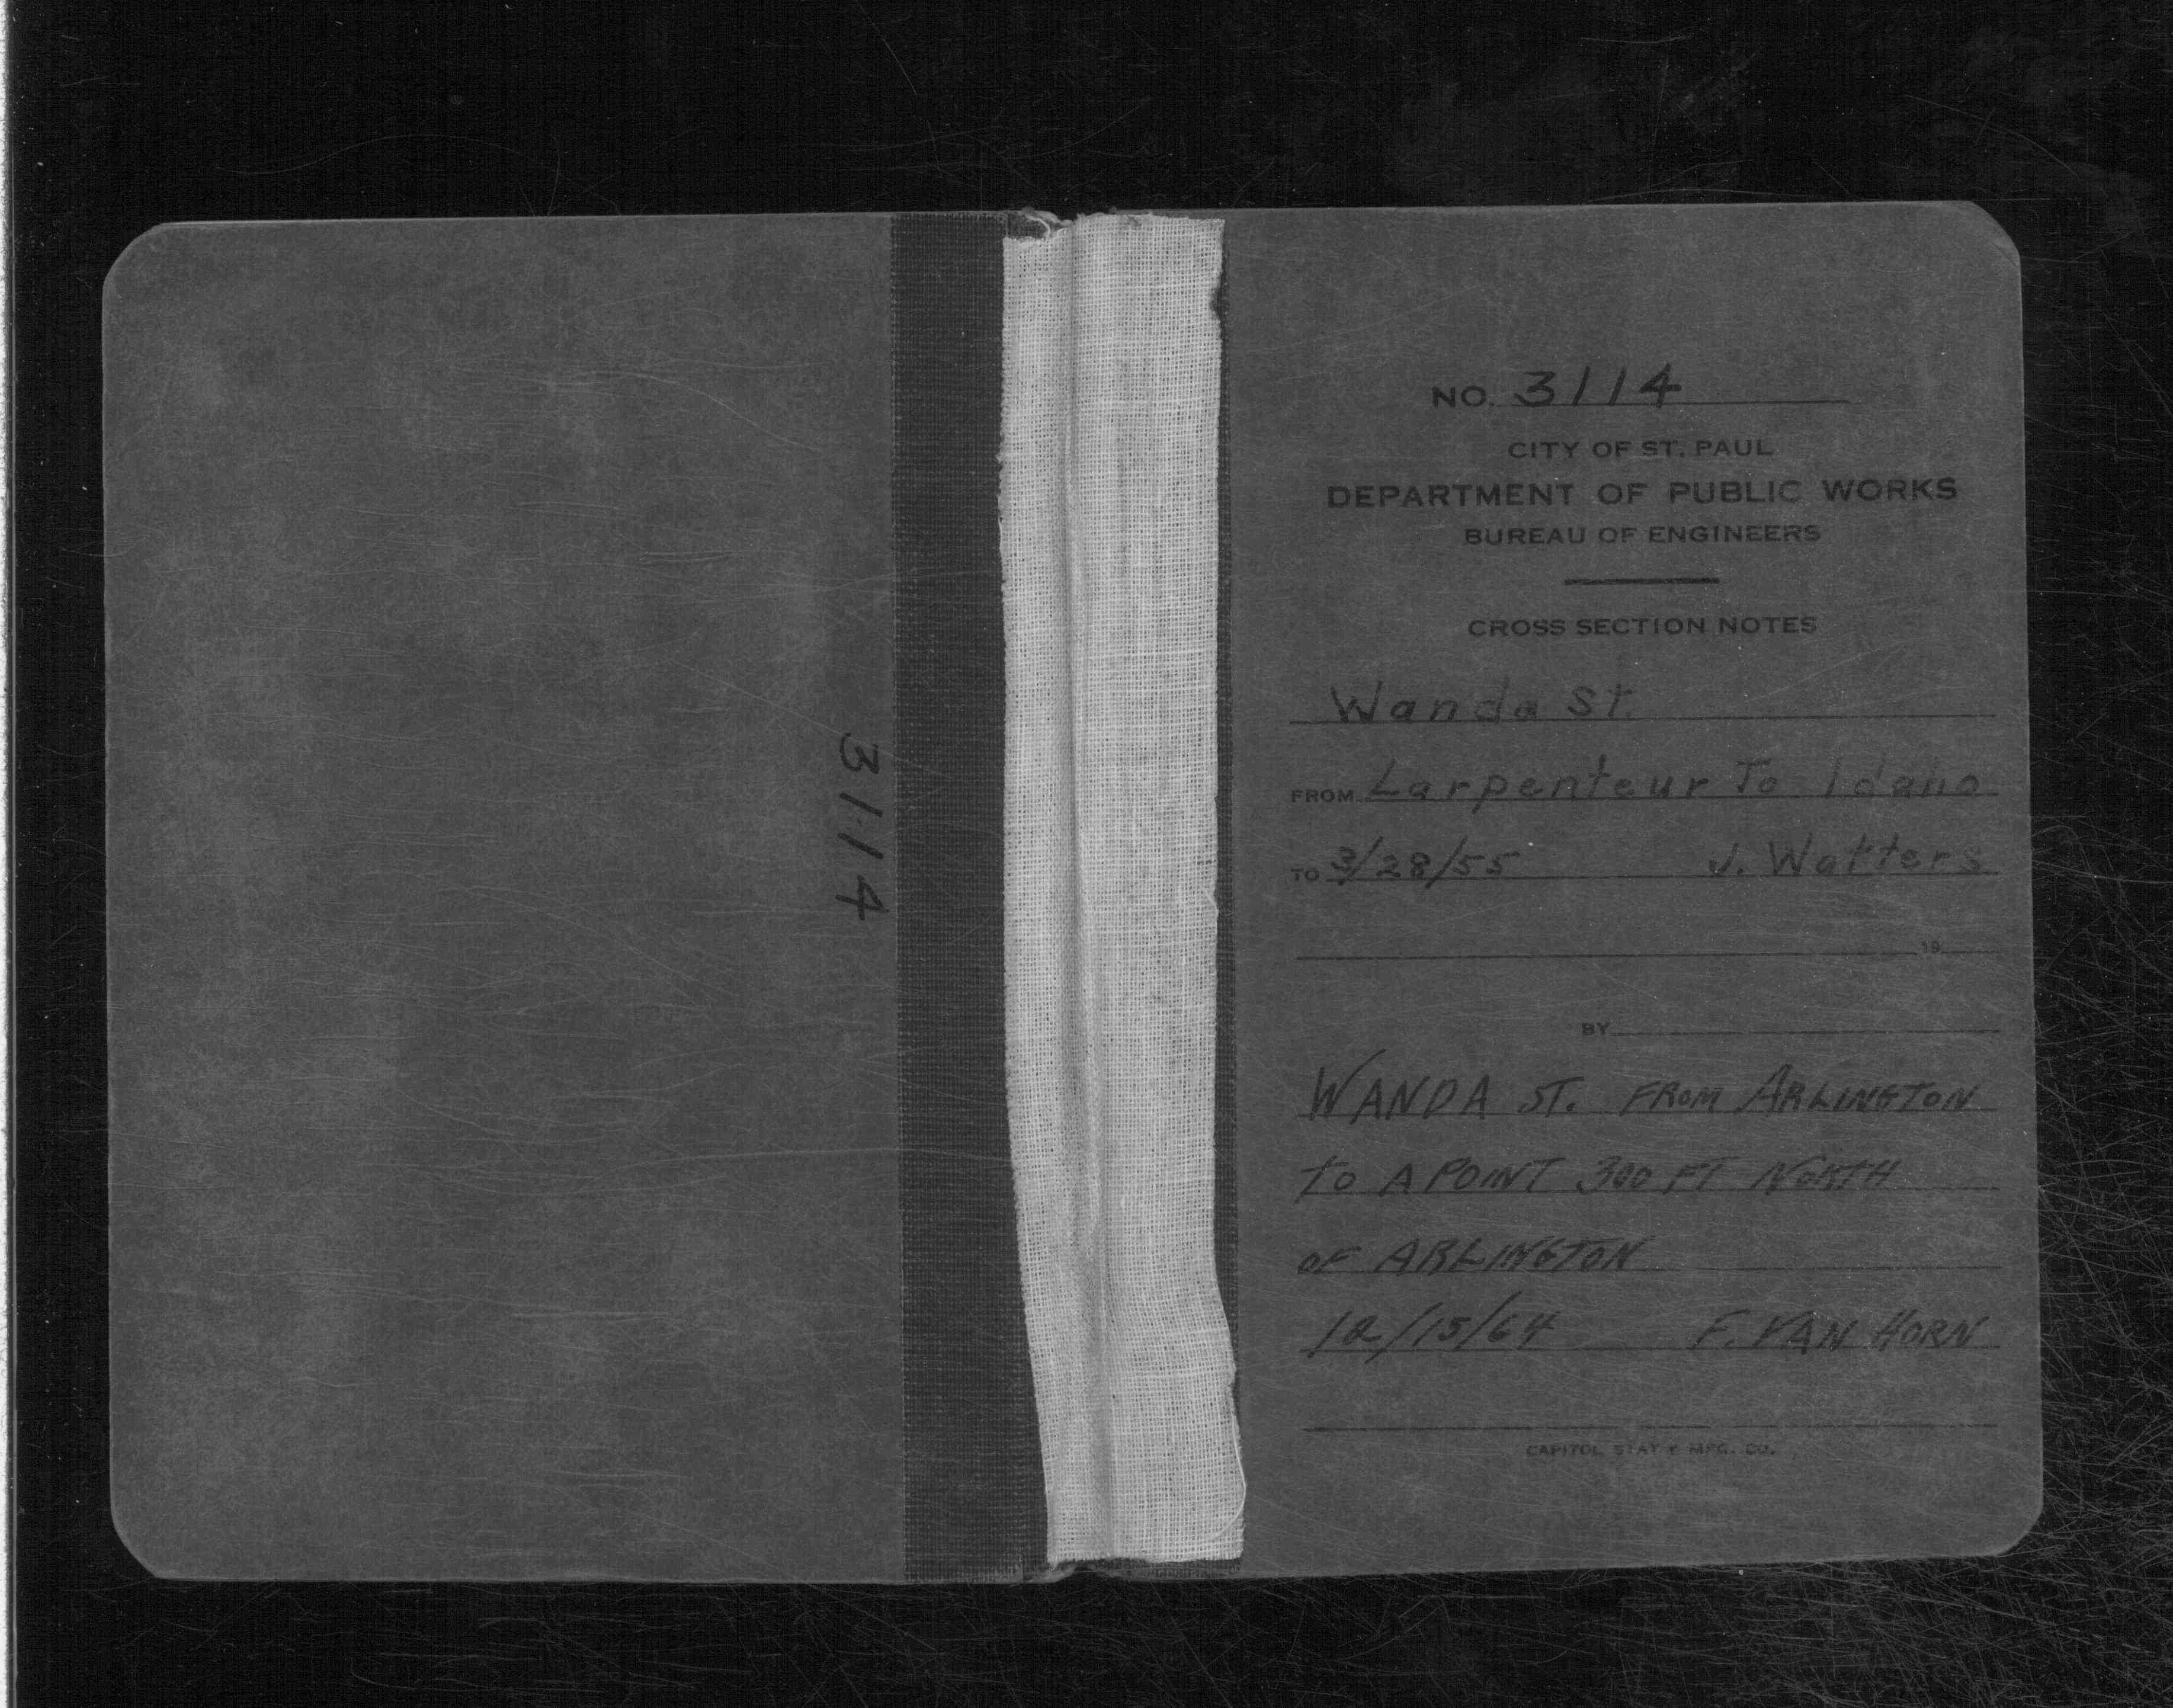 3114
NO. 3114
CITY OF ST. PAUL
DEPARTMENT OF PUBLIC WORKS
BUREAU OF ENGINEERS
CROSS SECTION NOTES
Wanda St.
FROM Larpenteur To Idaho
TO 3/28/55 J. Watters
19
BY
WANDA ST. FROM ARLINGTON
to A POINT 300 FT NORTH
OF ARLINGTON
12/15/64 F. VAN HORN
CAPITOL STAT'Y MFG. CO.